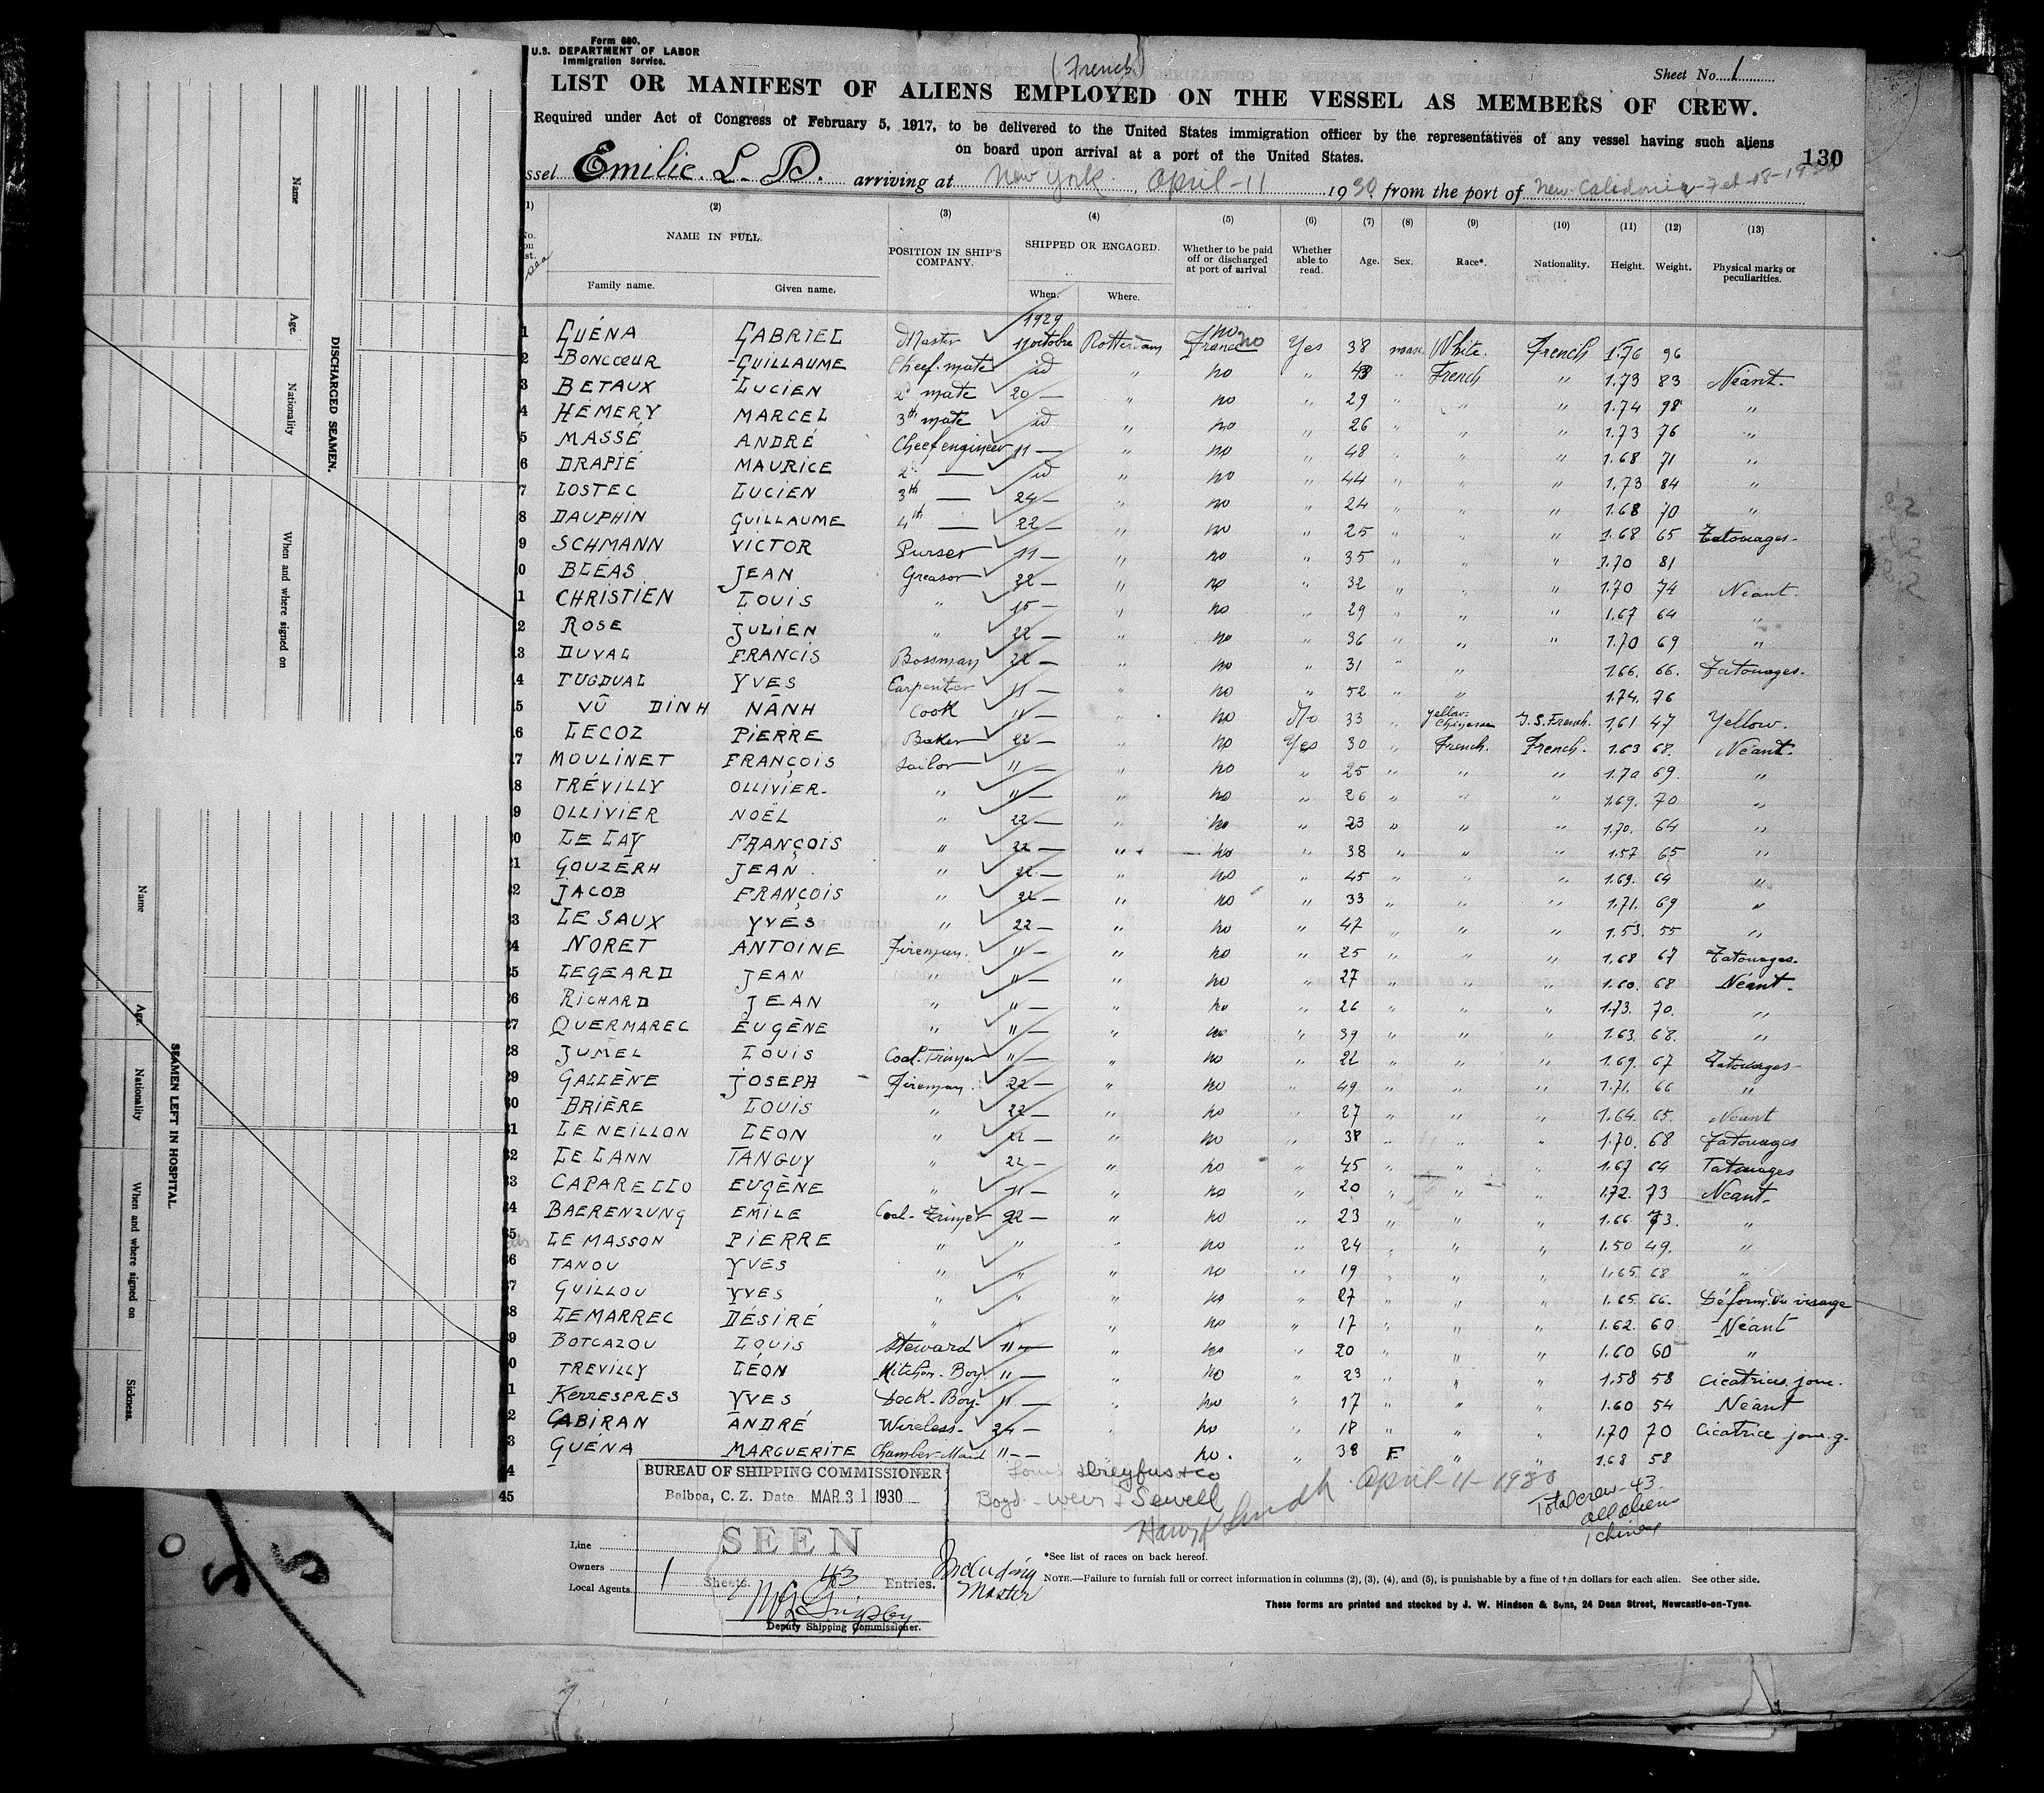 Form 680.
U.S. DEPARTMENT OF LABOR
Immigration Service.
(French)
Sheet No. 1
LIST OR MANIFEST OF ALIENS EMPLOYED ON THE VESSEL AS MEMBERS OF CREW.
Required under Act of Congress of February 5, 1917, to be delivered to the United States immigration officer by the representatives of any vessel having such aliens
on board upon arrival at a port of the United States.
130
ssel Emilie. L. D. arriving at New York, April-11 1930 from the port of New Calidonia-Feb-18-1930
(2) (3) (4) (5) (6) (7) (8) (9) (10) (11) (12) (13)
NAME IN FULL. Family name. Given name. POSITION IN SHIP'S COMPANY. SHIPPED OR ENGAGED. When. Where. Whether to be paid off or discharged at port of arrival Whether able to read. Age. Sex. Race*. Nationality. Height. Weight. Physical marks or peculiarities.
1929
1 GUÉNA GABRIEL Master 11 octobre Rotterdam France no no Yes 38 masc White. French 1.76 96
2 BONCŒUR GUILLAUME Cheef-mate id " no " 43 " French " 1.73 83 Néant.
3 BETAUX LUCIEN 2d mate 20 — " no " 29 " " " 1.74 98 "
4 HÉMERY MARCEL 3th mate id " no " 26 " " " 1.73 76 "
5 MASSÉ ANDRÉ Cheef engineer 11 — " no " 48 " " " 1.68 71 "
6 DRAPIÉ MAURICE 2d — id " no " 44 " " " 1.73 84 "
7 LOSTEC LUCIEN 3th — 24 — " no " 24 " " " 1.68 70 "
8 DAUPHIN GUILLAUME 4th — 22 — " no " 25 " " " 1.68 65 Tatouages-
9 SCHMANN VICTOR Purser 11 — " no " 35 " " " 1.70 81
0 BLÉAS JEAN Greasor 22 — " no " 32 " " " 1.70 74 Néant.
1 CHRISTIEN LOUIS " 15 — " no " 29 " " " 1.67 64 "
2 ROSE JULIEN " 22 — " no " 36 " " " 1.70 69 "
3 DUVAL FRANCIS Bossman 22 — " no " 31 " " 1.66. 66. Tatouages.
4 TUGDUAL YVES Carpenter 11 — " no " 52 " " 1.74. 76
5 VŨ DINH NÃNH Cook 11 — " no No 33 " Yellow- French. 1,61 47 Yellow.
6 LECOZ PIERRE Baker 22 — " no Yes 30 " French. French. 1.63 68. Néant.
7 MOULINET FRANÇOIS Sailor 11 — " no " 25 " " " 1.70 69. "
8 TRÉVILLY OLLIVIER- " 11 — " no " 26 " " " 1.69. 70 "
9 OLLIVIER NOËL " 22 — " no " 23 " " " 1.70. 64 "
0 LE LAY FRANÇOIS " 22 — " no " 38 " " " 1.57 65 "
1 GOUZERH JEAN. " 22 — " no " 45 " " " 1.69. 64 "
2 JACOB FRANÇOIS " 22 — " no " 33 " " " 1.71. 69 "
3 LE SAUX YVES " 22 — " no " 47 " " " 1.53. 55 "
24 NORET ANTOINE Fireman. 11 — " no " 25 " " " 1,68 67 Tatouages.
25 LEGEARD JEAN " 11 — " no " 27 " " " 1.60. 68 Néant.
26 RICHARD JEAN " 11 — " no " 26 " " " 1.73. 70. "
27 QUERMAREC EUGÈNE " 11 — " no " 39 " " " 1.63. 68. "
28 JUMEL LOUIS Coal-Trimer 11 — " no " 22 " " " 1.69. 67 Tatouages-
29 GALLÈNE JOSEPH Fireman. 22 — " no " 49 " " " 1.71. 66 "
30 BRIÈRE LOUIS " 22 — " no " 27 " " " 1.64. 65. Néant
31 LE NEILLON LÉON " 22 — " no " 38 " " " 1.70. 68 Tatouages
32 LE LANN TANGUY " 22 — " no " 45 " " " 1.67 64 Tatouages
33 CAPARELLO EUGÈNE " 11 — " no " 20 " " " 1.72. 73 Néant-
34 BAERENZUNG EMILE Coal-Trimer 22 — " no " 23 " " " 1.66 73. "
35 LE MASSON PIERRE " " " no " 24 " " " 1.50 49. "
36 TANOU YVES " " " no " 19 " " " 1.65. 68 "
37 GUILLOU YVES " " " no " 27 " " " 1.65. 66. Déform. du visage
38 LEMARREC DÉSIRÉ " " " no " 17 " " " 1.62. 60 Néant
39 BOTCAZOU LOUIS Steward 11 — " no " 20 " " " 1.60 60 "
0 TREVILLY LÉON Kitchen-Boy 11 — " no " 23 " " " 1.58 58 Cicatrice joue.
1 KERRESPRES YVES Deck-Boy 11 — " no " 17 " " " 1.60 54 Néant
2 CABIRAN ANDRÉ Wireless- 24 — " no " 18 " " " 1.70 70 Cicatrice joue g.
3 GUÉNA MARGUERITE Chamber-Maid 11 — no. " 38 F " " 1.68 58
4 Louis Dreyfus & Co
45 Boyd-Weir & Sewell
April-11-1930
Total crew-43
all aliens
1 chinese
BUREAU OF SHIPPING COMMISSIONER
Balboa, C. Z. Date MAR 31 1930
SEEN
1 Sheets. 43 Entries.
Including
Master
Deputy Shipping Commissioner.
Line
Owners
Local Agents
*See list of races on back hereof.
NOTE.—Failure to furnish full or correct information in columns (2), (3), (4), and (5), is punishable by a fine of ten dollars for each alien. See other side.
These forms are printed and stocked by J. W. Hindson & Sons, 24 Dean Street, Newcastle-on-Tyne.
DISCHARGED SEAMEN.
Name
Age.
Nationality
When and where signed on
SEAMEN LEFT IN HOSPITAL.
Name
Age.
Nationality
When and where signed on
Sickness.